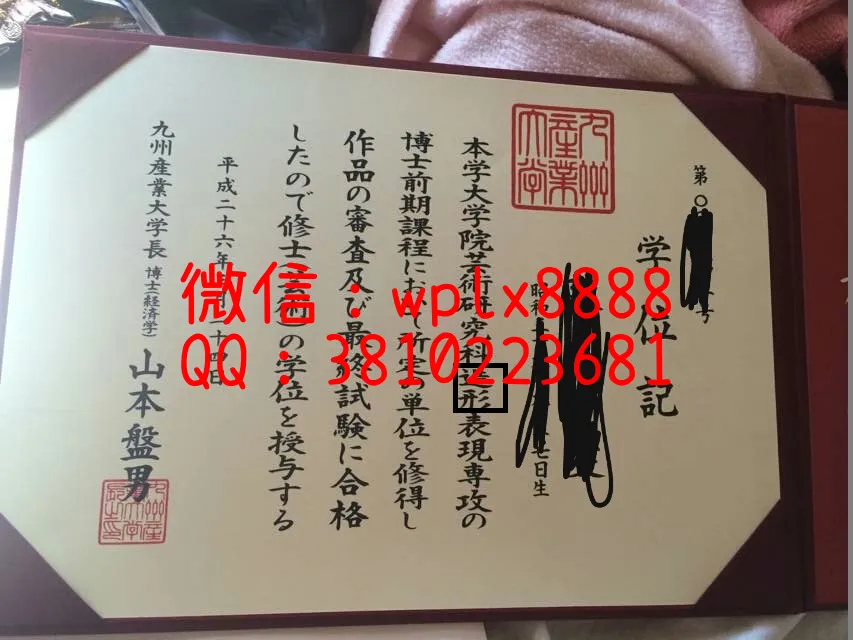 学位記
第〇
号
昭和
七日生
本学大学院芸術研究科造形表現専攻の
博士前期課程において所定の単位を修得し
作品の審査及び最終試験に合格
したので修士(芸術)の学位を授与する
平成二十六年
十四日
九州産業大学長 博士(経済学) 山本盤男
九州産業大学
微信：wplx8888
QQ：3810223681